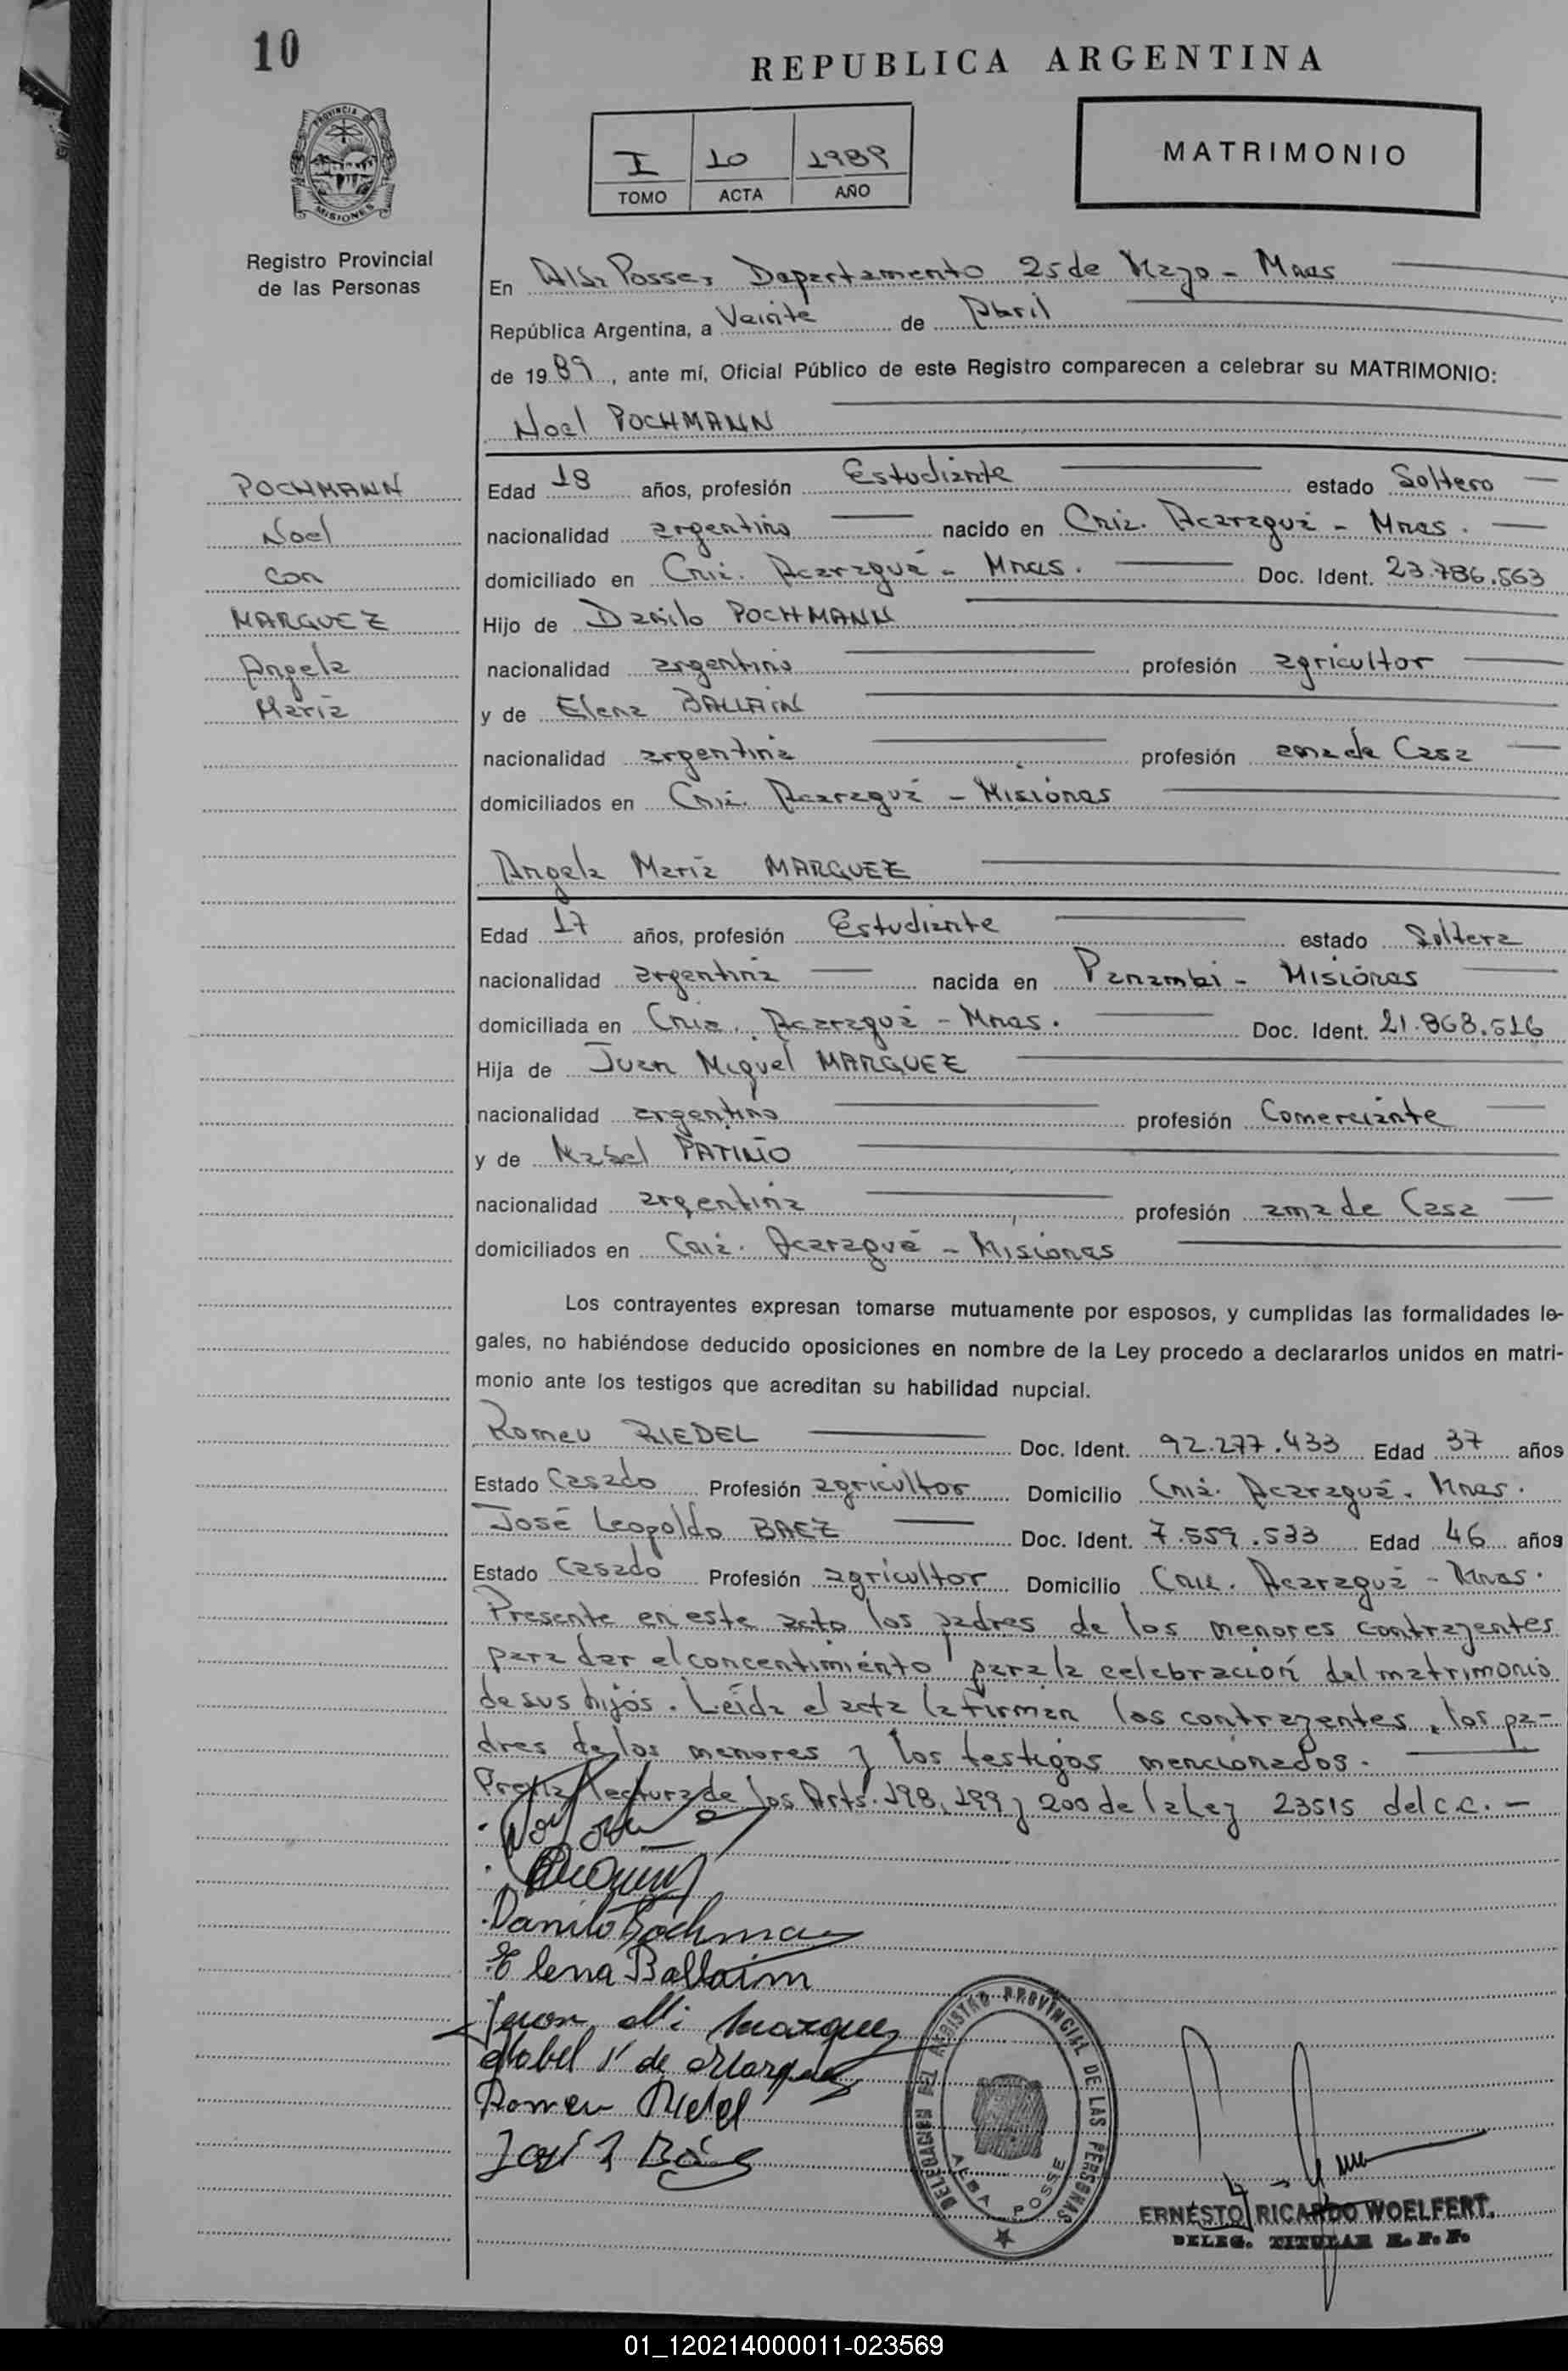 10
REPUBLICA ARGENTINA
PROVINCIA DE
MISIONES
I 10 1989
TOMO ACTA AÑO
MATRIMONIO
Registro Provincial
de las Personas
En Alba Posse, Departamento 25 de Mayo - Mnes
República Argentina, a Veinte de Abril
de 1989, ante mí, Oficial Público de este Registro comparecen a celebrar su MATRIMONIO:
Noel POCHMANN
POCHMANN
Noel
con
MARQUEZ
Angela
María
Edad 18 años, profesión Estudiante estado Soltero
nacionalidad argentino nacido en Cnia. Acaraguá - Mnes.
domiciliado en Cnia. Acaraguá - Mnes. Doc. Ident. 23.786.563
Hijo de Danilo POCHMANN
nacionalidad argentino profesión agricultor
y de Elena BALLAIN
nacionalidad argentina profesión ama de Casa
domiciliados en Cnia. Acaraguá - Misiones
Angela María MARQUEZ
Edad 17 años, profesión Estudiante estado Soltera
nacionalidad argentina nacida en Panambi - Misiones
domiciliada en Cnia. Acaraguá - Mnes. Doc. Ident. 21.868.516
Hija de Juan Miguel MARQUEZ
nacionalidad argentino profesión Comerciante
y de Mabel PATIÑO
nacionalidad argentina profesión ama de Casa
domiciliados en Cnia. Acaraguá - Misiones
Los contrayentes expresan tomarse mutuamente por esposos, y cumplidas las formalidades le-
gales, no habiéndose deducido oposiciones en nombre de la Ley procedo a declararlos unidos en matri-
monio ante los testigos que acreditan su habilidad nupcial.
Romeu RIEDEL Doc. Ident. 92.277.433 Edad 37 años
Estado Casado Profesión agricultor Domicilio Cnia. Acaraguá. Mnes.
José Leopoldo BAEZ Doc. Ident. 7.559.533 Edad 46 años
Estado Casado Profesión agricultor Domicilio Cnia. Acaraguá - Mnes.
Presente en este acto los padres de los menores contrayentes
para dar el concentimiento para la celebración del matrimonio
de sus hijos. Leída el acta la firman los contrayentes, los pa-
dres de los menores y los testigos mencionados.
Previa lectura de los Arts. 198, 199 y 200 de la Ley 23515 del C.C. -
Danilo Pochman
Elena Ballaim
Juan Mi Marquez
Mabel P de Marquez
Romeu Riedel
José L Báez
DELEGACION DEL REGISTRO PROVINCIAL DE LAS PERSONAS
ALBA POSSE
ERNESTO RICARDO WOELFERT
DELEG. TITULAR R. P. P.
01_120214000011-023569